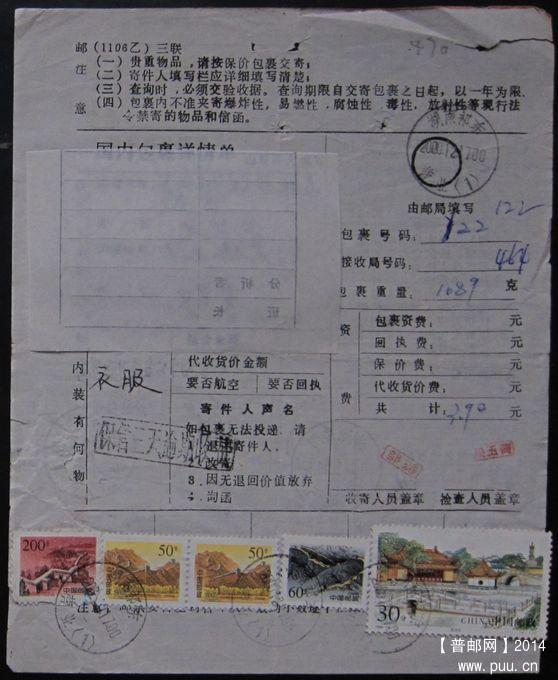 邮(1106乙)三联
470
注意
(一) 贵重物品,请按保价包裹交寄;
(二) 寄件人填写栏应详细填写清楚;
(三) 查询时,必须交验收据。查询期限自交寄包裹之日起,以一年为限。
(四) 包裹内不准夹寄爆炸性,易燃性,腐蚀性,毒性,放射性等现行法
令禁寄的物品和信函。
国内包裹详情单
由邮局填写
122
包裹号码:122
接收局号码:464
包裹重量:1089克
资费
包裹资费:元
回执费:元
保价费:元
代收货价费:元
共计:3.90元
收寄人员盖章
检查人员盖章
内装有何物
衣服
代收货价金额
要否航空
要否回执
寄件人声名
如包裹无法投递,请
1.退还寄件人.
2.改寄
3.因无退回价值放弃
4.询函
200分
50分
50分
60分
30分
CHINA 中国邮政
【普邮网】2014
www.puu.cn